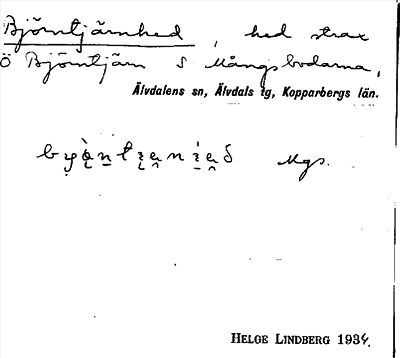 Björntjärnhed, hed strax
Ö Björntjärn S Mångsbodarna,
Älvdalens sn, Älvdals tg, Kopparbergs län.
Mgs.
HELGE LINDBERG 1934.